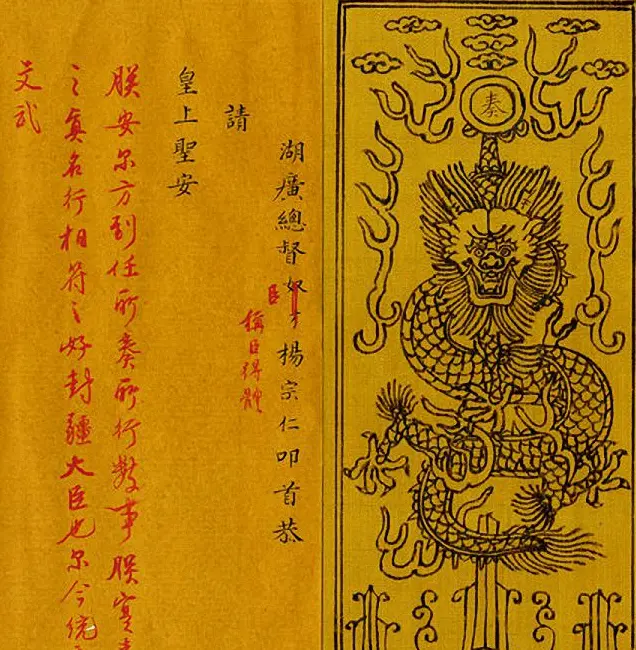 奏
湖廣總督奴才楊宗仁叩首恭
臣
稱臣得體
請
皇上聖安
朕安尔方到任所奏所行數事朕實
之真名行相符之好封疆大臣也尔今統
文武